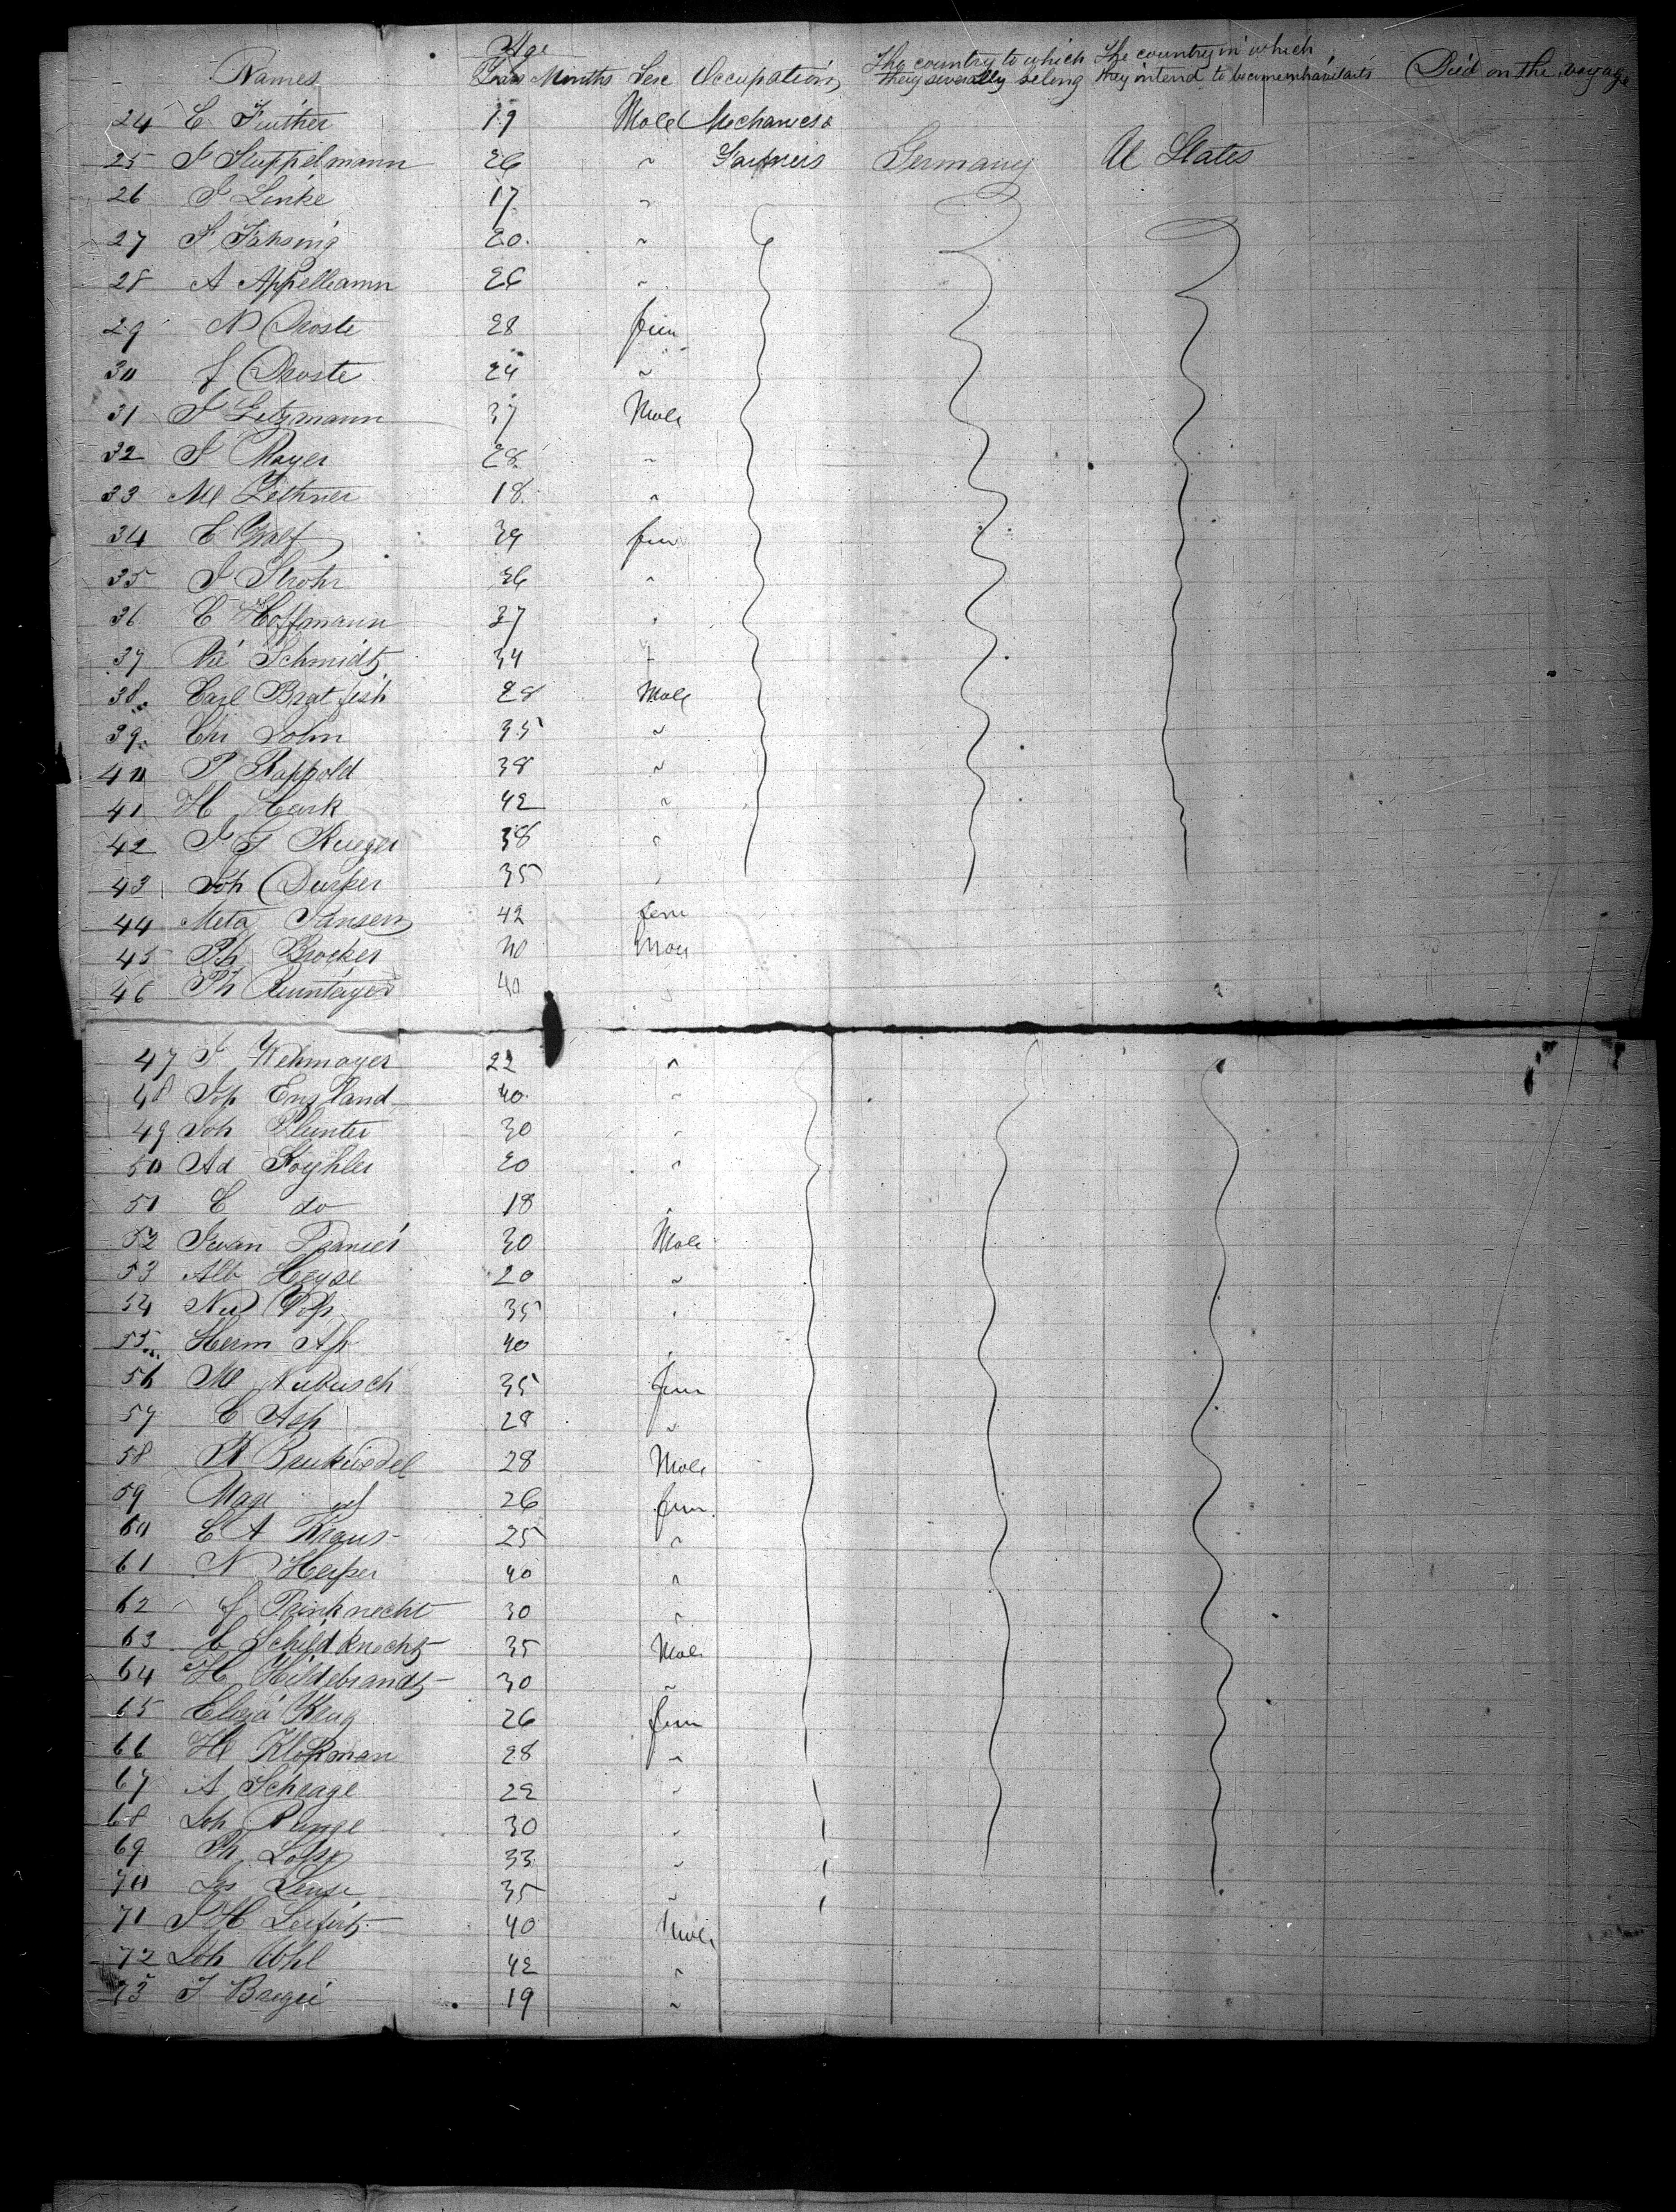 Age
Names Years Months Sex Occupation The country to which they severally belong The country in which they intend to become inhabitants Died on the voyage
24 C Further 19 Male Mechanics &
25 F Stuppelmann 26 " Farmers Germany U States
26 F Linke 17 "
27 F Fahsing 20 "
28 A Appelbamn 26 "
29 N Droste 28 fem
30 f Droste 24 "
31 F Getzmann 37 Male
32 F Mayer 28 "
33 M Lethner 18 "
34 C Graf 39 fem
35 F Strohr 36 "
36 C Hoffmann 37 "
37 Schmidtz 34 "
38 Carl Bratfish 28 Male
39 Chr John 35 "
40 P Rappold 38 "
41 H Hark 42 "
42 F F Krueger 38 "
43 Joh Durker 35 "
44 Meta Jansen 42 fem
45 Ph Brocker 40 Male
46 Ph 40 "
47 F Wehmayer 22 "
48 Jos England 40 "
49 Joh Plunter 30 "
50 Ad Koyhler 20 "
51 C do 18 "
52 Iwan Franier 30 Male
53 Alb Heyse 20 "
54 35 "
55 Herm Ash 40 "
56 M Nubusch 35 fem
57 C Ash 28 "
58 28 Male
59 Marg 26 fem
60 C A Kraus 25 "
61 N Hesper 40 "
62 f Trinknecht 30 "
63 C Schildknechtz 35 Male
64 H Hildebrandtz 30 "
65 Eliza Krug 26 fem
66 H Klopman 28 "
67 A Schrage 22 "
68 Joh Runge 30 "
69 Ph 33 "
70 35 "
71 F H Leifertz 40 Male
72 Joh Uhl 42 "
73 F Bargei 19 "